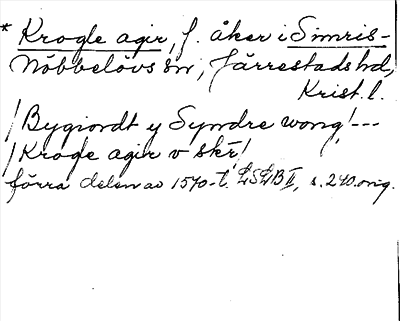 * Krogle agir, f. åker i Simris-
Nöbbelövs sn, Järrestads hd,
Krist. l.
/Bygiordt y Syndre wong/---
/Krogle agir v skr/
förra delen av 1570-t. LSLB II, s. 240 orig.